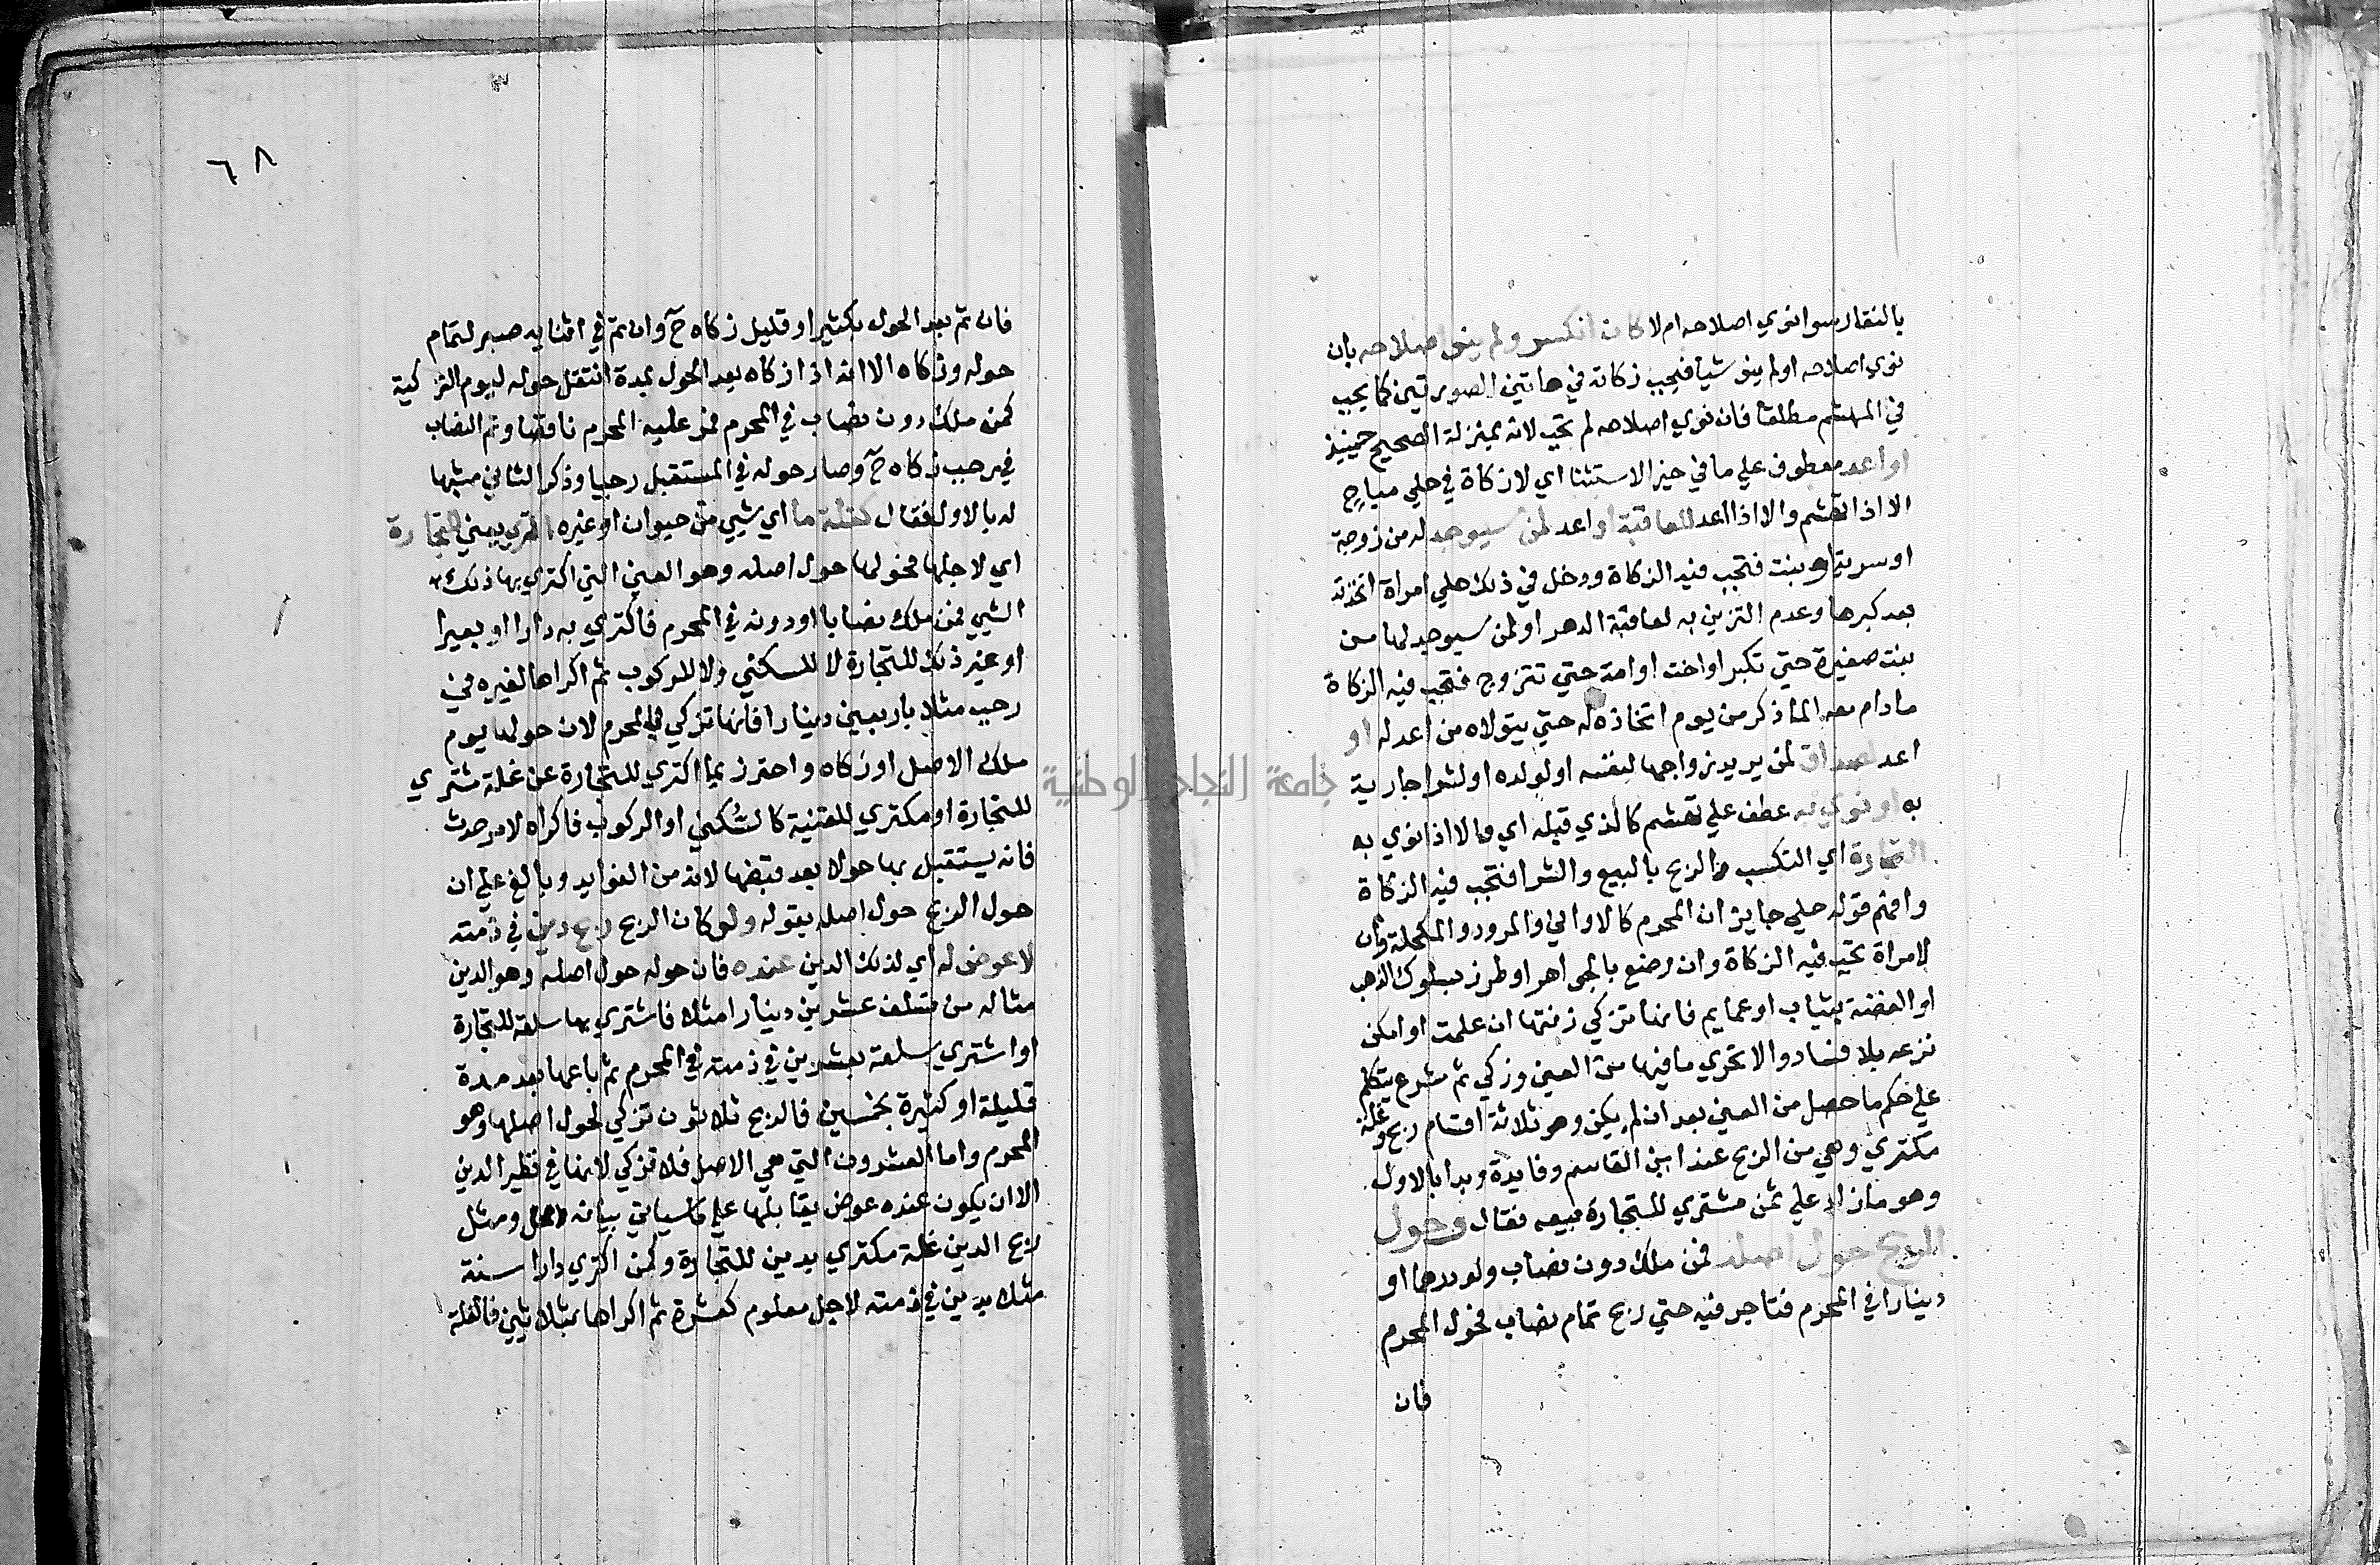 بالنقار سوا نوي اصلاحه ام لا كان انكسر ولم ينو اصلاحه بان
نوي اصلاحه او لم ينو شيا فيجب زكاته في هاتين الصورتين كما يجب
في المهشم مطلقا فان نوي اصلاحه لم تجب لانه بمنزلة الصحيح حينيذ
او اعد معطوف علي ما في حيز الاستثنا اي لا زكاة في حلي مباح
الا اذا تهشم والا اذا اعد للعاقبة او اعد لمن سيوجد له من زوجة
او سرية او بنت فتجب فيه الزكاة ودخل في ذلك حلي امراة اتخذته
بعد كبرها وعدم التزين به لعاقبة الدهر او لمن سيوجد لها من
بنت صغيرة حتي تكبر او اخت او امة حتي تتزوج فتجب فيه الزكاة
ما دام معه لما ذكر من يوم اتخاذه له حتي يتولاه من اعد له او
اعد لصداق لمن يريد زواجها لنفسه او لولده او لشرا جارية
به او نوي به عطف علي تهشم كالذي قبله اي والا اذا نوي به
التجارة اي التكسب والربح بالبيع والشرا فتجب فيه الزكاة
وافهم قوله حلي جايز ان المحرم كالاواني والمرود والمكحلة وان
لامراة تجب فيه الزكاة وان رصع بالجواهر او طرز بسلوك الذهب
او الفضة بثياب او عمايم فانها تزكي زنتها ان علمت او امكن
نزعه بلا فساد والا تحري ما فيها من العين وزكي ثم شرع يتكلم
علي حكم ما حصل من العين بعد ان لم يكن وهو ثلاثة اقسام ربح وغلة
مكتري وهي من الربح عند ابن القاسم وفايدة وبدا بالاول
وهو ما زاد علي ثمن مشتري للتجارة مبيعه فقال وحول
الربح حول اصله فمن ملك دون نصاب ولو درهما او
دينارا في المحرم فتاجر فيه حتي ربح تمام نصاب فحول المحرم
فان
٦٨
فان تم بعد الحول بكثير او قليل زكاه ح وان تم في اثنايه صبر لتمام
حوله وزكاه الا انه اذا زكاه بعد الحول بمدة انتقل حوله ليوم التزكية
كمن ملك دون نصاب في المحرم فمر عليه المحرم ناقصا وتم النصاب
في رجب زكاه ح وصار حوله في المستقبل رجبا وذكر الثاني مشبها
له بالاول فقال كغلة ما اي شيي من حيوان او غيره اكتري يعني للتجارة
اي لاجلها فحولها حول اصله وهو العين التي اكتري بها ذلك
الشيي فمن ملك نصابا او دونه في المحرم فاكتري به دارا او بعيرا
او غير ذلك للتجارة لا للسكني ولا للركوب ثم اكراها لغيره في
رجب مثلا باربعين دينارا فانها تزكي في المحرم لان حولها يوم
ملك الاصل او زكاه واحترز بما اكتري للتجارة عن غلة مشتري
للتجارة او مكتري للقنية كالسكني او الركوب فاكراه لامر حدث
فانه يستقبل بها حولا بعد قبضها لانه من الفوايد وبالغ علي ان
حول الربح حول اصله بقوله ولو كان الربح ربح دين في ذمته
لا عوض له اي لذلك الدين عنده فان حوله حول اصله وهو الدين
مثاله من تسلف عشرين دينارا مثلا فاشتري بها سلعة للتجارة
او اشتري سلعة بعشرين في ذمته في المحرم ثم باعها بعد مدة
قليلة او كثيرة بخمسين فالربح ثلاثون تزكي لحول اصلها وهو
المحرم واما العشرون التي هي الاصل فلا تزكي لانها في نظير الدين
الا ان يكون عنده عوض يقابلها علي ما سياتي بيانه ومثل
ربح الدين غلة مكتري بدين للتجارة وكمن اكتري دارا سنة
مثلا بدين في ذمته لاجل معلوم كعشرة ثم اكراها بثلاثين فالغلة
جامعة النجاح الوطنية